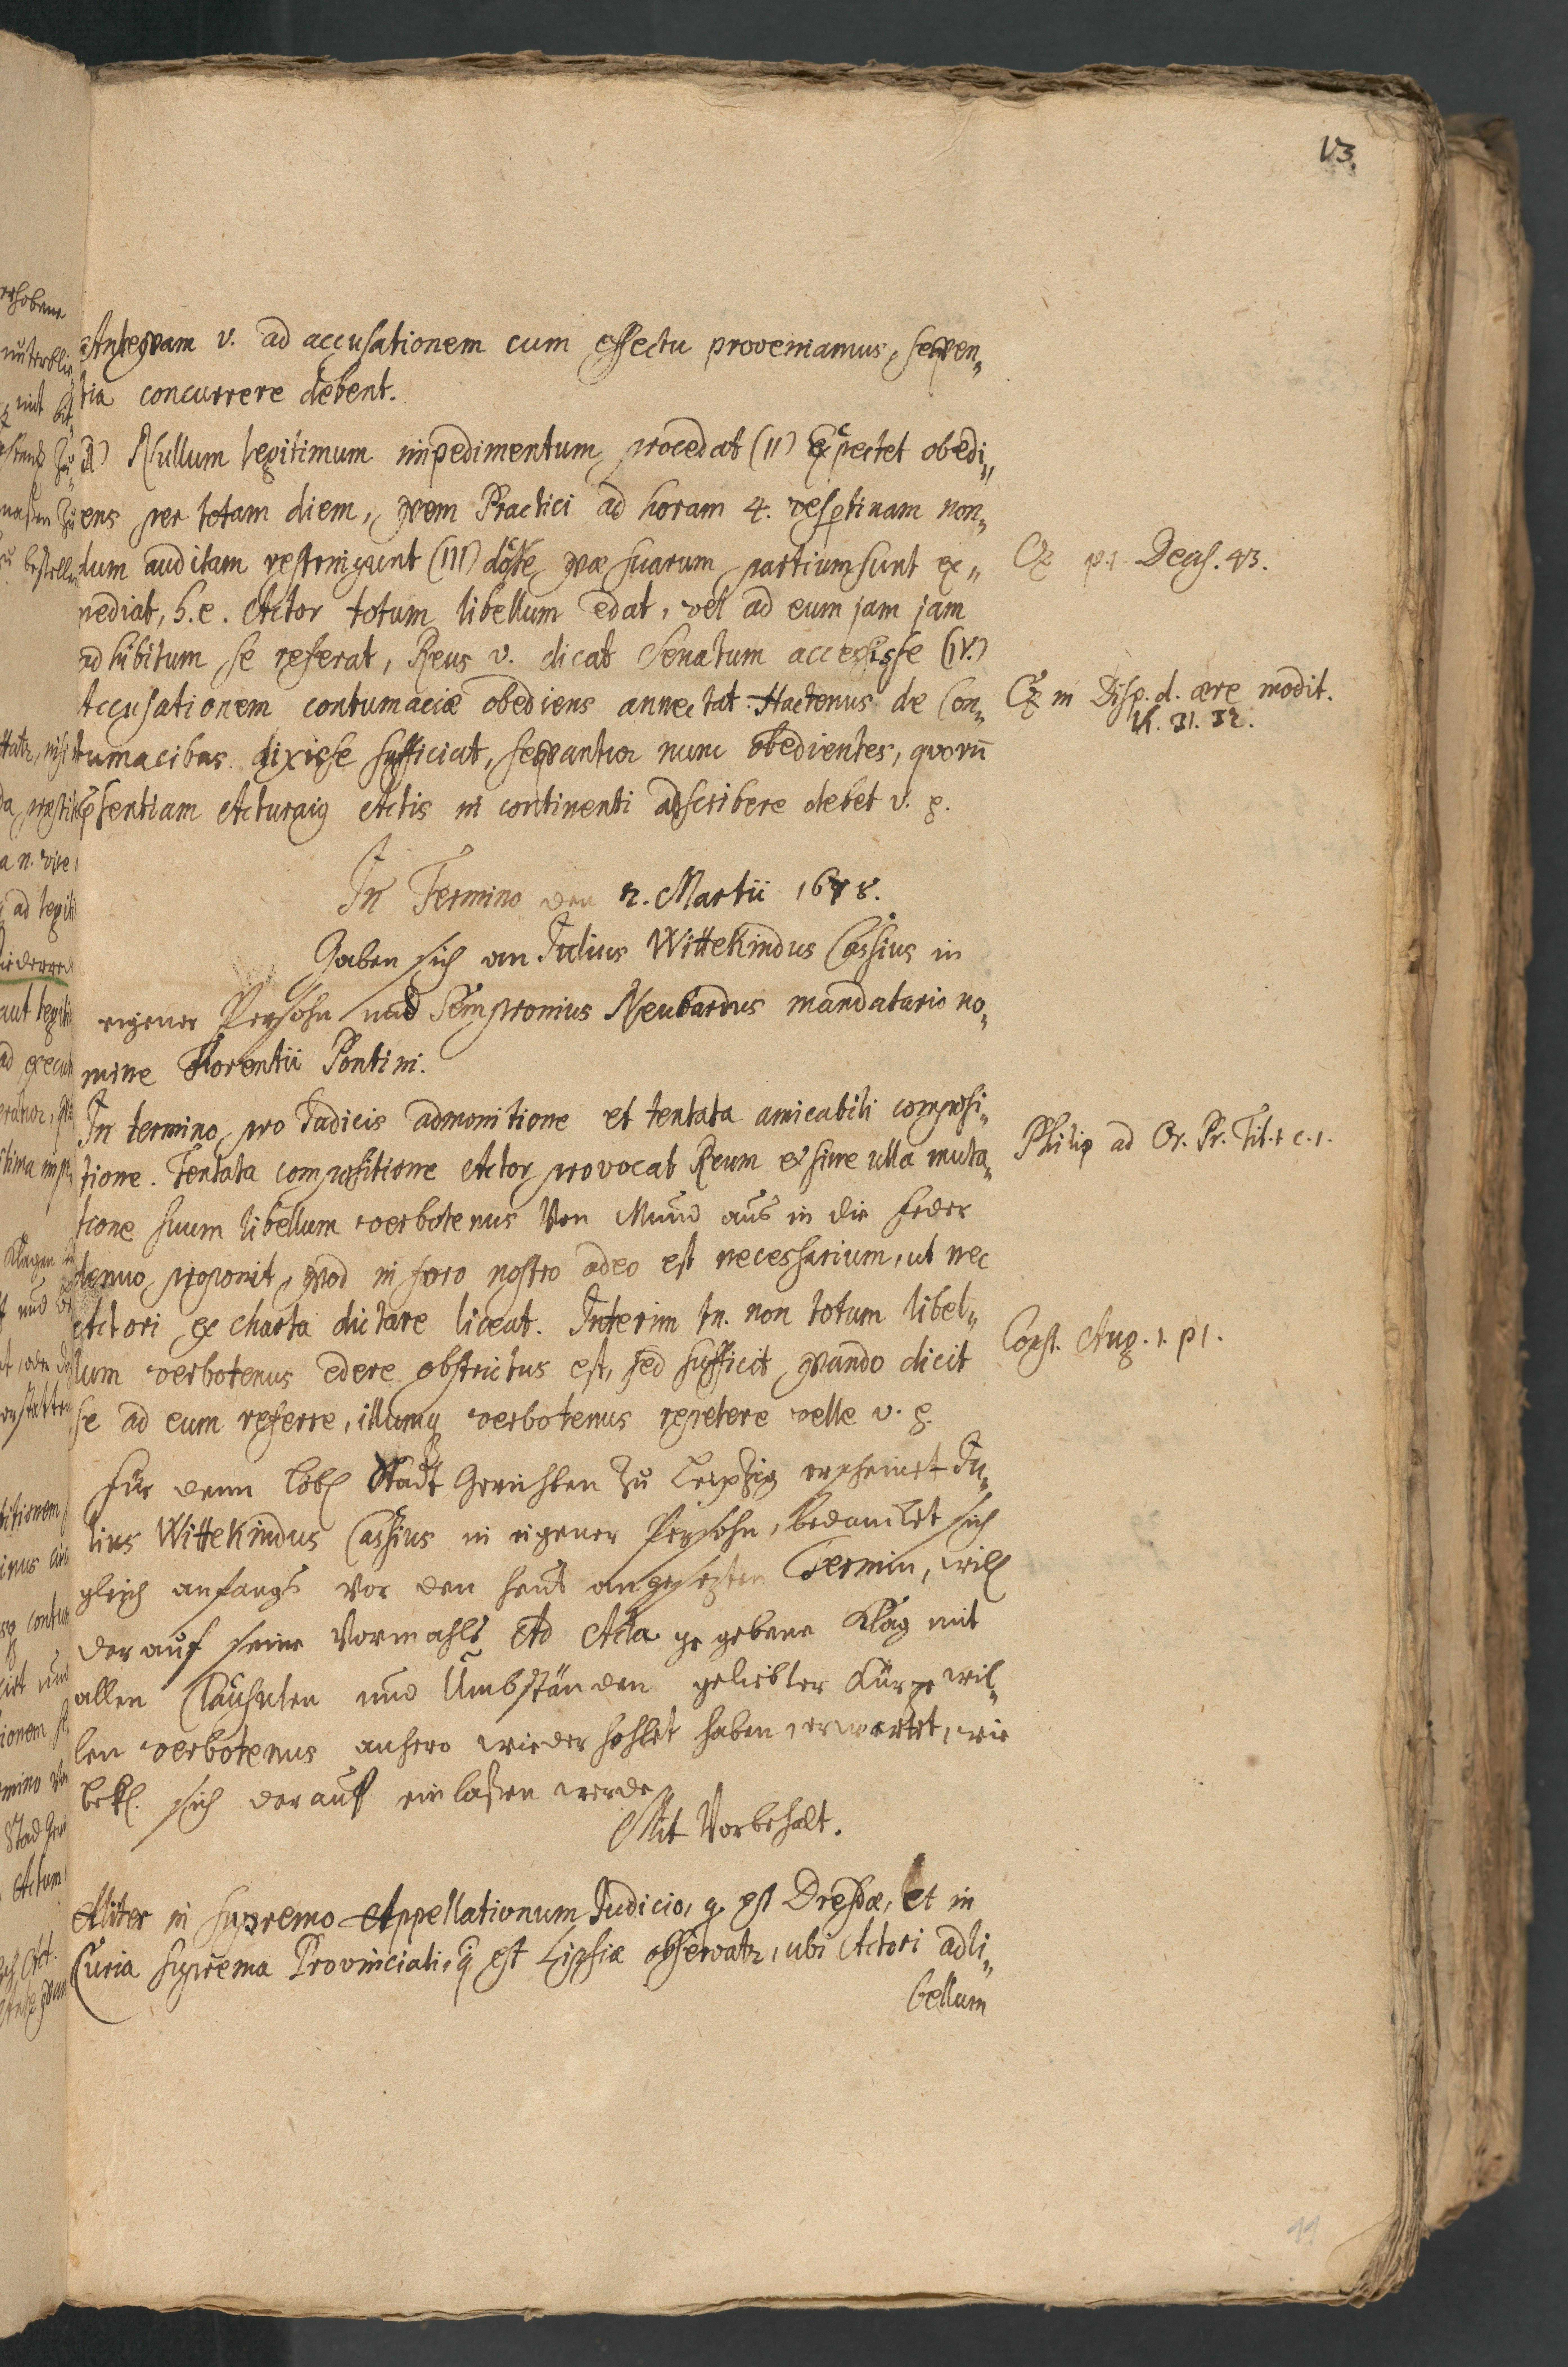 13.
Anteqvam v. ad accusationem cum effectu proveniamus, seqven„
tia concurrere debent.
Nullum legitimum impedimentum procedat (II) Expectet obedi„
ens per totam diem, qvem Practici ad horam 4. vespertinam non„
dum auditam restringunt (III) qvæ suarum partium sunt ex„
pediat, h.e. Actor totum libellum edat, vel ad eum jam jam
adhibitum se referat, Reus v. dicat Senatum accessisse (IV.)
Accusationem contumaciæ obediens annectat. Hactenus de Con„
tumacibus dixisse sufficiat, seqvantur nunc obedientes, quorū
Actis in continenti adscribere debet v. g.
In Termino den 2. Martii 1678.
Gaben sich an Julius Wittekindus Cassius in
eigener Persohn und Sempronius Neubardus mandatario no„
mine Florentii Pontini.
In termino, pro Judicis admonitione et tentata amicabili composi„
tione. Tentata compositione Actor provocat Reum et sine ulla muta„
tione suum libellum verbotenus Von Mund aus in die Feder
denuo proponit, qvod in foro nostro adeo est necessarium, ut nec
Actori ex charta dictare liceat. Interim tn. non totum libel„
lum verbotenus edere obstrictus est, sed sufficit, qvando dicit
se ad eum referre, illumq verbotenus repetere velle v. g.
Für denn löbl Stadt Gerichten zu Leipzig erscheinet Ju„
lius Wittekindus Cassius in eigener Persohn, bedancket sich
gleich anfangs vor den heut angesezten Termin, will
darauf seine Vormahls Ad Acta gegebene Klag mit
allen Clausulen und Umbständen geliebter Kürze wil„
len verbotenus anhero wiederhohlet haben erwartet, wie
bekl. sich darauf einlaßen werde
Mit Vorbehalt.
Aliter in supremo Appellationum Judicio, q. est Dresdæ, et in
Curia suprema Provinciali, q est Lipsiæ observatr, ubi Actori adli„
bellum
Cz p. 1 Decis. 43.
Cz in Disp. d. ære
31. 32.
Philip ad Or. Pr. Tit. 1 c. 1.
Const. Aug. 1. p 1.